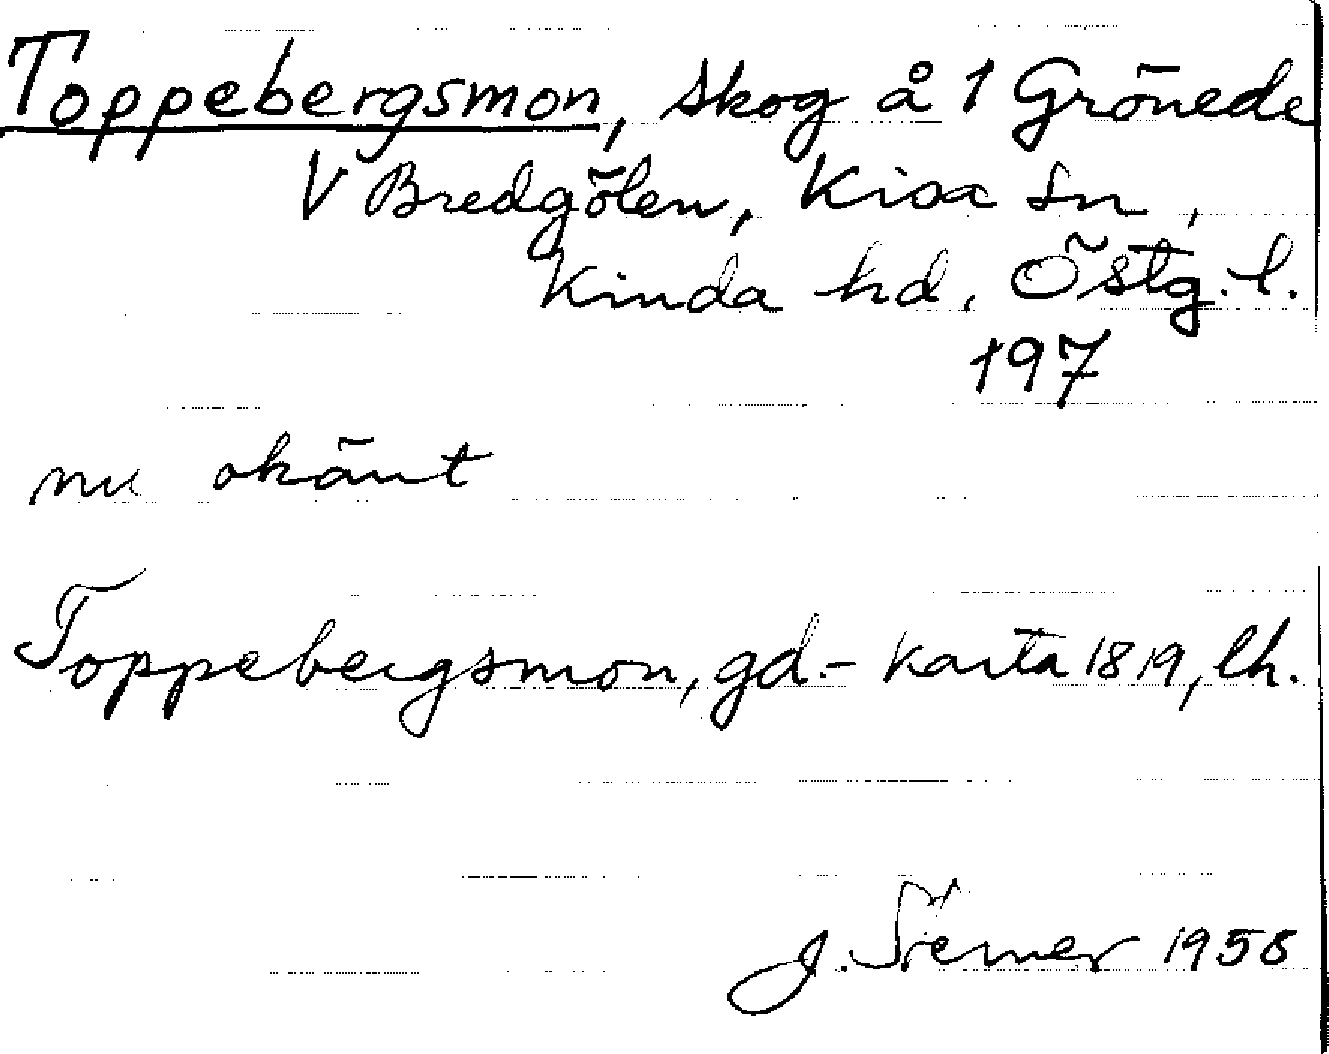 Toppebergsmon, skog å 1 Grönede
V Bredgölen, Kisa sn,
Kinda hd, Östg.l.
197
nu okänt
Toppebergsmon, gd.- karta 1819, lh.
J. 1958